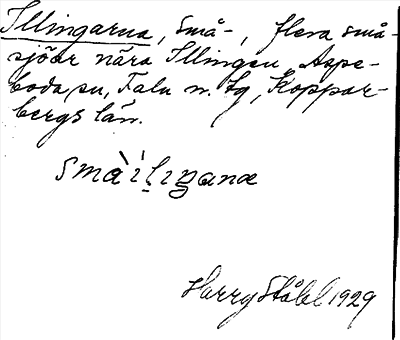 Illingarna, Små-, flera små-
sjöar nära Illingen, Aspe-
boda sn, Falu n. tg, Koppar-
bergs län.
små`i`l̥ıŋana
Harry Ståhl 1929